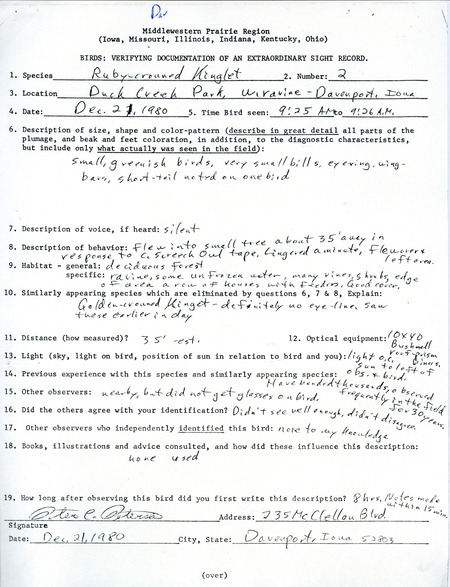 Middlewestern Prairie Region
(Iowa, Missouri, Illinois, Indiana, Kentucky, Ohio)
BIRDS: VERIFYING DOCUMENTATION OF AN EXTRAORDINARY SIGHT RECORD.
1. Species Ruby-crowned Kinglet 2. Number: 2
3. Location Duck Creek Park, W. ravine - Davenport, Iowa
4. Date: Dec. 21, 1980 5. Time Bird seen: 9:25 AM to 9:26 A.M.
6. Description of size, shape and color-pattern (describe in great detail all parts of the
plumage, and beak and feet coloration, in addition, to the diagnostic characteristics,
but include only what actually was seen in the field):
small, greenish birds, very small bills, eyering, wing-
bars, short-tail noted on one bird
7. Description of voice, if heard: silent
8. Description of behavior: Flew into small tree about 35' away in
response to C. Screech Owl tape, Lingered a minute, Flew over &
left area.
9. Habitat - general: deciduous forest
specific: ravine, some unfrozen water, many vines, shrubs, edge
of area a row of houses with feeders. Good cover.
10. Similarly appearing species which are eliminated by questions 6, 7 & 8, Explain:
Golden-crowned Kinglet - definitely no eye-line. Saw
these earlier in day
11. Distance (how measured)? 35' -est. 12. Optical equipment: 10X40
Bushnell
roof-prism
Binocs.
13. Light (sky, light on bird, position of sun in relation to bird and you): light o.c.
Sun to left of
obs. & bird.
14. Previous experience with this species and similarly appearing species:
Have banded thousands, observed
frequently in the field
for 30 years.
15. Other observers: nearby, but did not get glasses on bird.
16. Did the others agree with your identification? Didn't see well enough, didn't disagree.
17. Other observers who independently identified this bird: none to my knowledge
18. Books, illustrations and advice consulted, and how did these influence this description:
none used
19. How long after observing this bird did you first write this description? 8 hrs. Notes made
within 15 min.
Peter C. Petersen Address: 235 McClellan Blvd.
Signature
Date: Dec. 21, 1980 City, State: Davenport, Iowa 52803
(over)